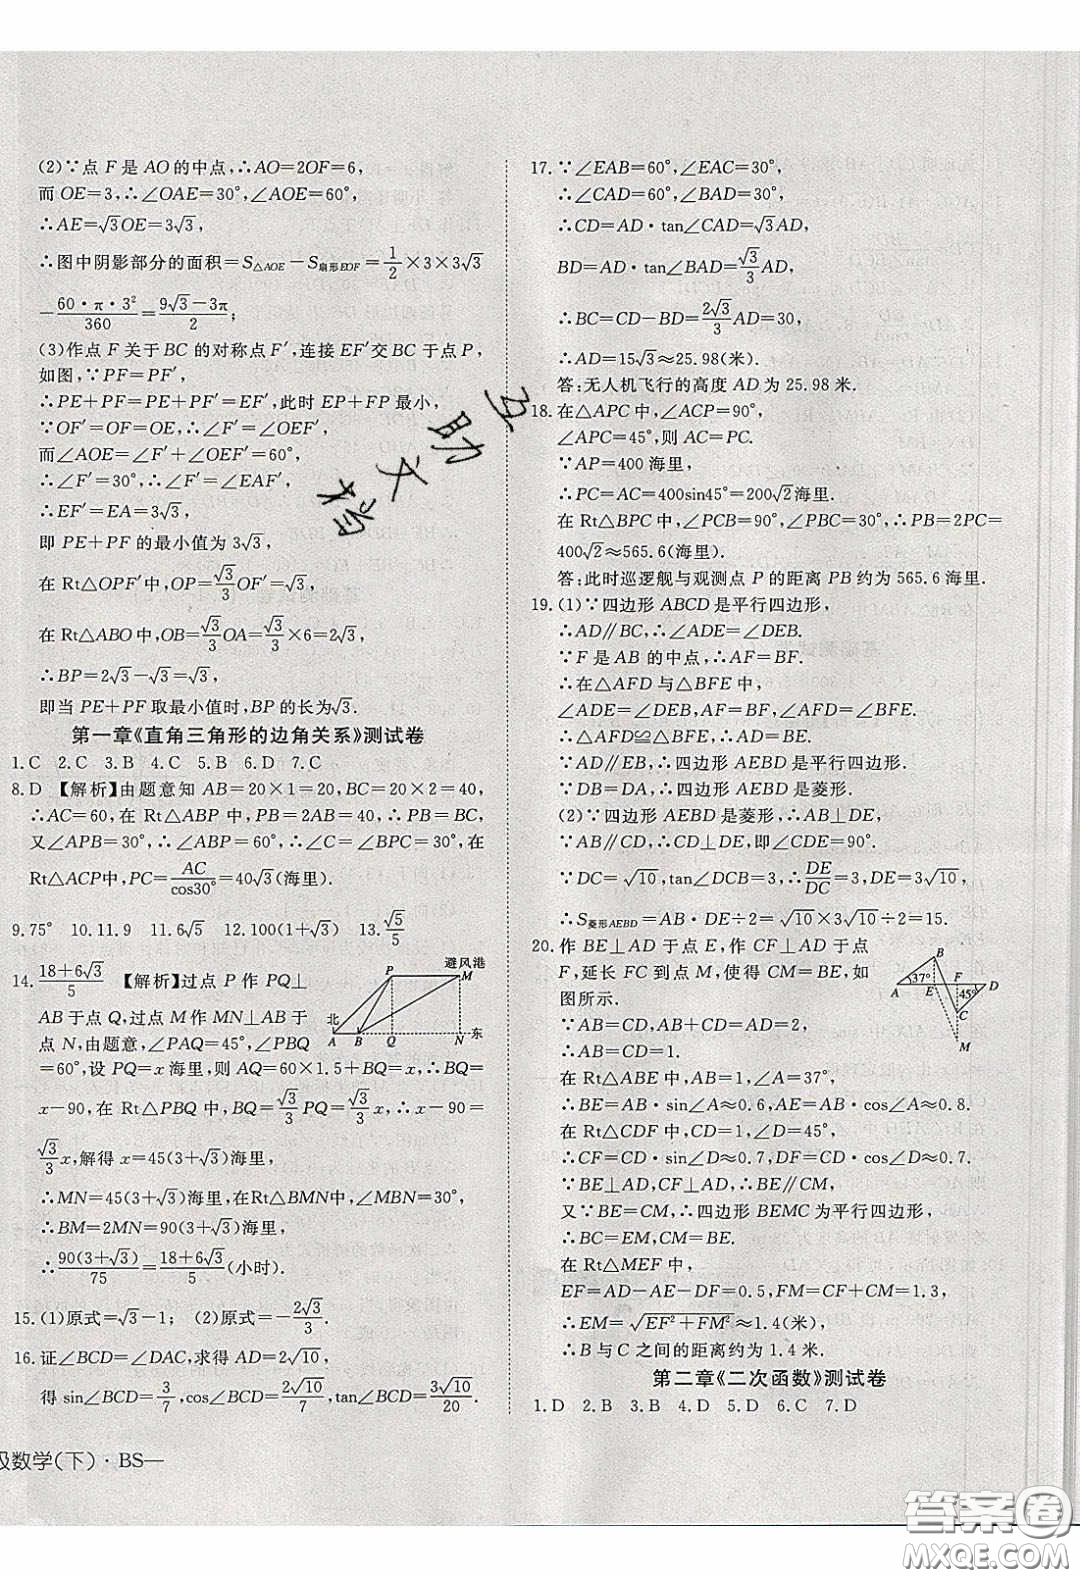 (2)∵点 F 是 AO 的中点,∴AO=2OF=6,
而 OE=3,∴∠OAE=30°,∠AOE=60°,
∴AE=√3OE=3√3,
∴图中阴影部分的面积=S△AOE−S扇形EOF=1/2×3×3√3
−60·π·3²/360=(9√3−3π)/2;
(3)作点 F 关于 BC 的对称点 F′,连接 EF′交 BC 于点 P,
如图,∵PF=PF′,
∴PE+PF=PE+PF′=EF′,此时 EP+FP 最小,
∵OF′=OF=OE,∴∠F′=∠OEF′,
而∠AOE=∠F′+∠OEF′=60°,
∴∠F′=30°,∴∠F′=∠EAF′,
∴EF′=EA=3√3,
即 PE+PF 的最小值为 3√3,
在 Rt△OPF′中,OP=√3/3 OF′=√3,
在 Rt△ABO 中,OB=√3/3 OA=√3/3×6=2√3,
∴BP=2√3−√3=√3,
即当 PE+PF 取最小值时,BP 的长为√3.
第一章《直角三角形的边角关系》测试卷
1.C 2.C 3.B 4.C 5.B 6.D 7.C
8.D 【解析】由题意知 AB=20×1=20,BC=20×2=40,
∴AC=60,在 Rt△ABP 中,PB=2AB=40,∴PB=BC,
又∠APB=30°,∴∠ABP=60°,∴∠C=∠BPC=30°,在
Rt△ACP中,PC=AC/cos30°=40√3(海里).
9.75° 10.11.9 11.6√5 12.100(1+√3) 13.√5/5
14.(18+6√3)/5 【解析】过点 P 作 PQ⊥
AB 于点 Q,过点 M 作 MN⊥AB 于
点 N,由题意,∠PAQ=45°,∠PBQ
=60°,设 PQ=x 海里,则 AQ=60×1.5+BQ,∴BQ=
x−90,在 Rt△PBQ 中,BQ=√3/3 PQ=√3/3 x,∴x−90=
√3/3 x,解得 x=45(3+√3)海里,
∴MN=45(3+√3)海里,在Rt△BMN中,∠MBN=30°,
∴BM=2MN=90(3+√3)海里,
∴90(3+√3)/75=(18+6√3)/5(小时).
P
避风港
M
北
A B Q N 东
15.(1)原式=√3−1; (2)原式=−2√3/3.
16.证∠BCD=∠DAC,求得 AD=2√10,
得 sin∠BCD=3/7,cos∠BCD=2√10/7,tan∠BCD=3√10/20.
级数学(下)·BS—
17.∵∠EAB=60°,∠EAC=30°,
∴∠CAD=60°,∠BAD=30°,
∴CD=AD·tan∠CAD=√3AD,
BD=AD·tan∠BAD=√3/3 AD,
∴BC=CD−BD=2√3/3 AD=30,
∴AD=15√3≈25.98(米).
答:无人机飞行的高度 AD 为 25.98 米.
18.在△APC 中,∠ACP=90°,
∠APC=45°,则 AC=PC.
∵AP=400 海里,
∴PC=AC=400sin45°=200√2海里.
在 Rt△BPC 中,∠PCB=90°,∠B=30°,∴PB=2PC=
400√2≈565.6(海里).
答:此时巡逻舰与观测点 P 的距离 PB 约为 565.6 海里.
19.(1)∵四边形 ABCD 是平行四边形,
∴AD∥BC,∴∠ADE=∠DEB.
∵F 是 AB 的中点,∴AF=BF.
∴在△AFD 与△BFE 中,
∠ADE=∠DEB,∠AFD=∠BFE,AF=BF,
∴△AFD≌△BFE,∴AD=BE.
∵AD∥EB,∴四边形 AEBD 是平行四边形.
∵DB=DA,∴四边形 AEBD 是菱形.
(2)∵四边形 AEBD 是菱形,∴AB⊥DE,
∵AB∥CD,∴CD⊥DE,即∠CDE=90°.
∵DC=√10,tan∠DCB=3,∴DE/DC=3,DE=3√10,
∴S菱形AEBD=AB·DE÷2=√10×3√10÷2=15.
20.作 BE⊥AD 于点 E,作 CF⊥AD 于点
F,延长 FC到点 M,使得 CM=BE,如
图所示.
∵AB=CD,AB+CD=AD=2,
∴AB=CD=1.
在 Rt△ABE 中,AB=1,∠A=37°,
∴BE=AB·sin∠A≈0.6,AE=AB·cos∠A≈0.8.
在 Rt△CDF 中,CD=1,∠D=45°,
∴CF=CD·sin∠D≈0.7,DF=CD·cos∠D≈0.7.
∵BE⊥AD,CF⊥AD,∴BE∥CM,
又∵BE=CM,∴四边形 BEMC 为平行四边形,
∴BC=EM,CM=BE.
在 Rt△MEF 中,
EF=AD−AE−DF=0.5,FM=CF+CM=1.3,
∴EM=√(EF²+FM²)≈1.4(米),
∴B 与 C 之间的距离约为 1.4 米.
B
A 37° F D
E 45°
C
M
第二章《二次函数》测试卷
1.D 2.B 3.B 4.D 5.D 6.C 7.D
互助文档
答案卷
MXQE.COM